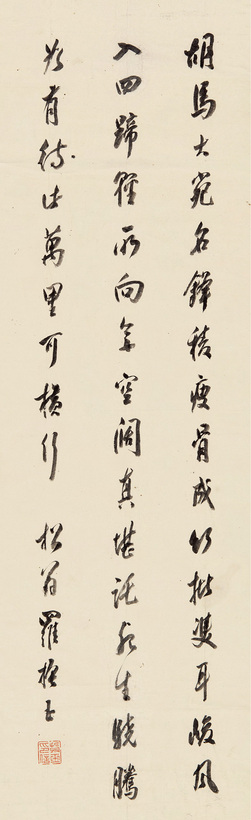 胡馬大宛名鋒稜瘦骨成竹批雙耳峻風
入四蹄輕所向無空闊真堪託死生驍騰
為有待此萬里可橫行 松翁羅振玉